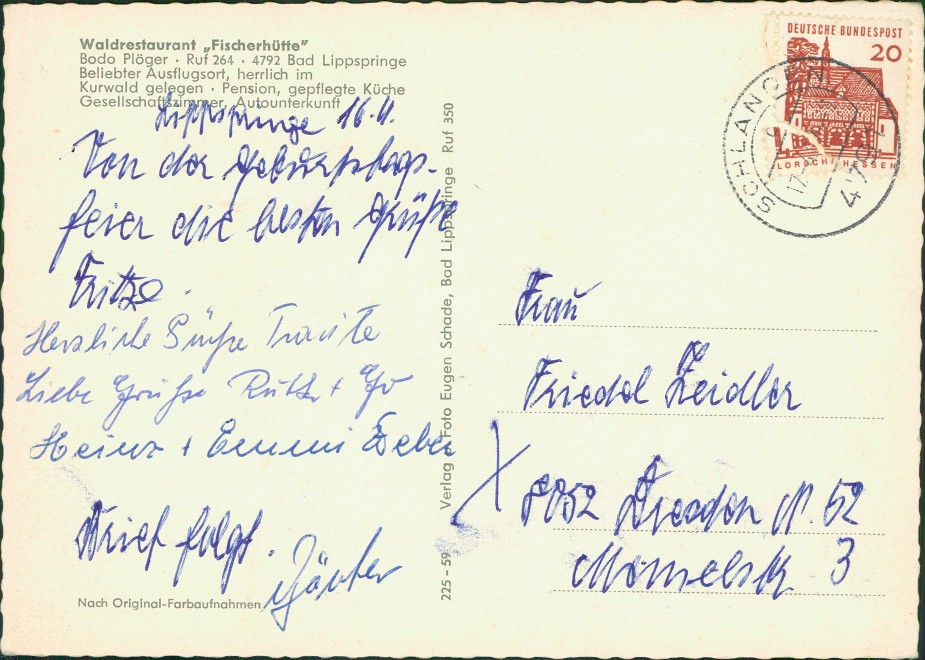 Waldrestaurant „Fischerhütte"
Bodo Plöger · Ruf 264 · 4792 Bad Lippspringe
Beliebter Ausflugsort, herrlich im
Kurwald gelegen · Pension, gepflegte Küche
Gesellschaftszimmer, Autounterkunft
Lippspringe 16.4.
Von der Geburtstags-
feier die besten Grüße
Fritze.
Herzliche Grüße Traute
Liebe Grüße Ruth +
Heinz + Emmi Weber
Brief folgt.
Nach Original-Farbaufnahmen
225 - 59 Verlag Foto Eugen Schade, Bad Lippspringe Ruf 350
DEUTSCHE BUNDESPOST
20
LORSCH/HESSEN
SCHLANGEN
Frau
Friedel Zeidler
X 8052 Dresden N. 52
3